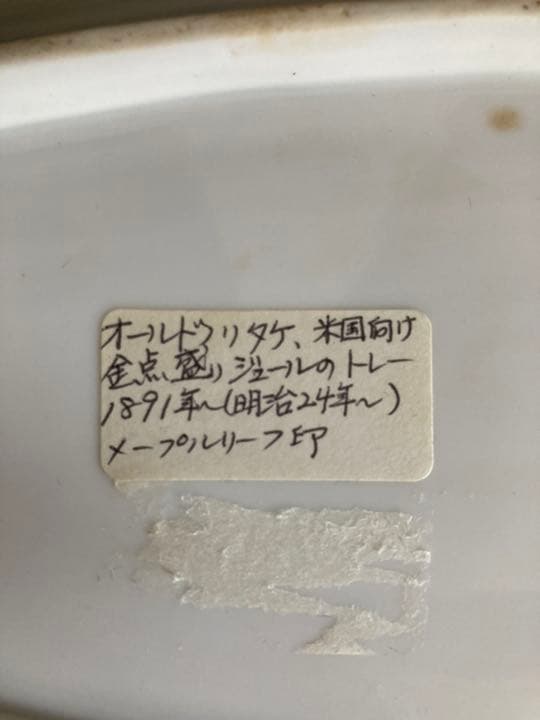 オールドノリタケ、米国向け
金点盛りジュールのトレー
1891年〜(明治24年〜)
メープルリーフ印